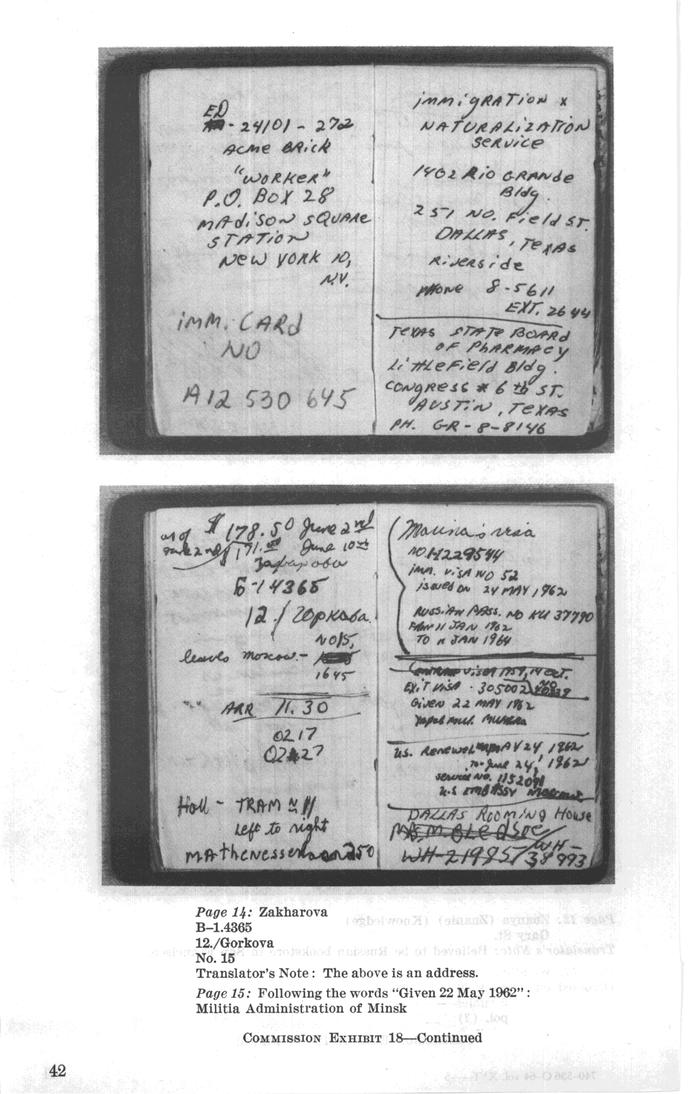 ED
- 24101 - 272
ACME BRICK
"WORKER"
P.O. BOX 28
MADISON SQUARE
STATION
NEW YORK 10,
N.Y.
IMM. CARD
NO
A12 530 645
IMMIGRATION &
NATURALIZATION
SERVICE
1402 RIO GRANDE
Bldg.
251 NO. Field ST.
DALLAS, TEXAS
Riverside
PHONE 8-5611
EXT. 2644
TEXAS STATE BOARD
OF PHARMACY
LittleField Bldg.
CONGRESS & 6th ST.
AUSTIN, TEXAS
PH. GR-8-8146
as of $178.50 June 2nd
171. June 10th
Захарова
Б-14365
12./Горкова
NO 15,
leaves Moscow -
1645
ARR 11.30
0217
0227
Holl - TRAM 11
Left to right
MAthenesser 250
Marina's visa
NO H229544
IMM. VISA NO 52
issued on 24 MAY, 1962
RUSSIAN PASS. NO KU 37790
FROM 11 JAN 1962
TO 11 JAN 1964
VISA 1959, 14 OCT.
EXIT VISA - 305002
Given 22 MAY 1962
U.S. Renewel MAY 24 1962
to June 24, 1962
Service NO. 1152091
U.S. EMBASSY Moscow
DALLAS ROOMING House
BLEDSOE
WH-21985/WH-
38993
Page 14: Zakharova
B–1.4365
12./Gorkova
No. 15
Translator's Note: The above is an address.
Page 15: Following the words “Given 22 May 1962”:
Militia Administration of Minsk
COMMISSION EXHIBIT 18—Continued
42